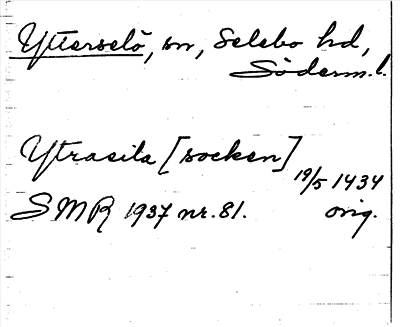 Ytterselö, sn, Selebo hd,
Söderm.l.
Ytrasila [socken]
19/5 1434
SMR 1937 nr. 81. orig.